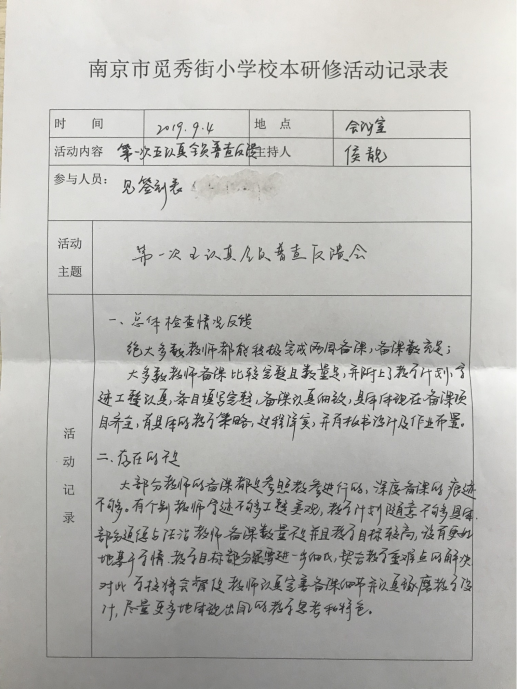 南京市觅秀街小学校本研修活动记录表
时 间 2019.9.4 地 点 会议室
活动内容 第一次五认真全员普查反馈 主持人 侯靓
参与人员： 见签到表
活动主题 第一次五认真全员普查反馈会
活动记录
一、总体检查情况反馈
绝大多数教师都能积极完成两周备课，备课数充足；
大多数教师备课比较完整且数量足，并附上了教学计划，字
迹工整认真，条目填写完整，备课认真细致，具体体现在备课项
目齐全，有具体的教学策略，过程详实，并有板书设计及作业布置。
二、存在的不足
大部分教师的备课都是参照教参进行的，深度备课的痕迹
不够。有个别教师字迹不够工整美观，教学计划随意不够具体
部分通信与任治教师备课数量不足并且教学目标较高，没有更好
地基于学情，教学目标部分需要进一步细化，契合教学重难点的解决
对此学校将会督促教师认真完善备课细节并认真琢磨教学设
计，尽量更多地体现出自己的教学思考和特色。